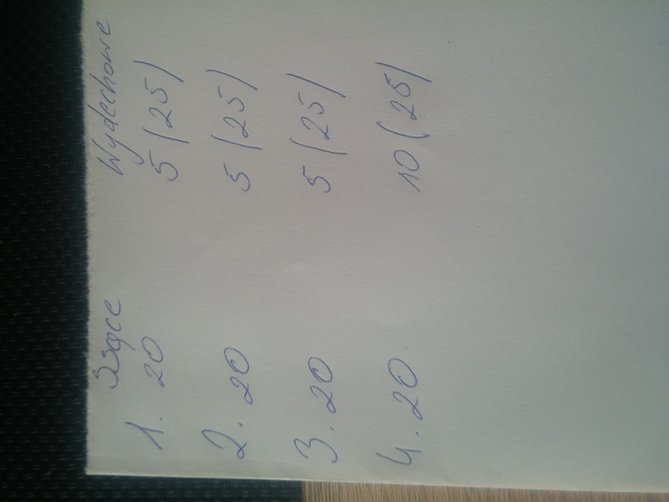 Ssące Wydechowe
1. 20 5 (25)
2. 20 5 (25)
3. 20 5 (25)
4. 20 10 (25)